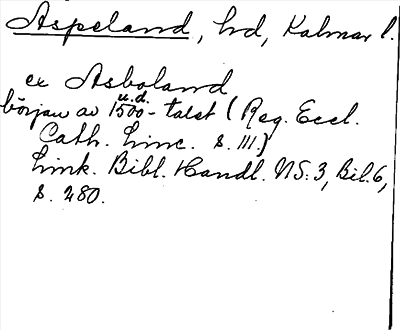 Aspeland, hd, Kalmar l.
ex Asboland
u.d.
början av 1500-talet (Reg. Eccl.
Cath. Linc. s. 111.)
Link. Bibl. Handl. NS. 3, Bil. 6,
s. 280.